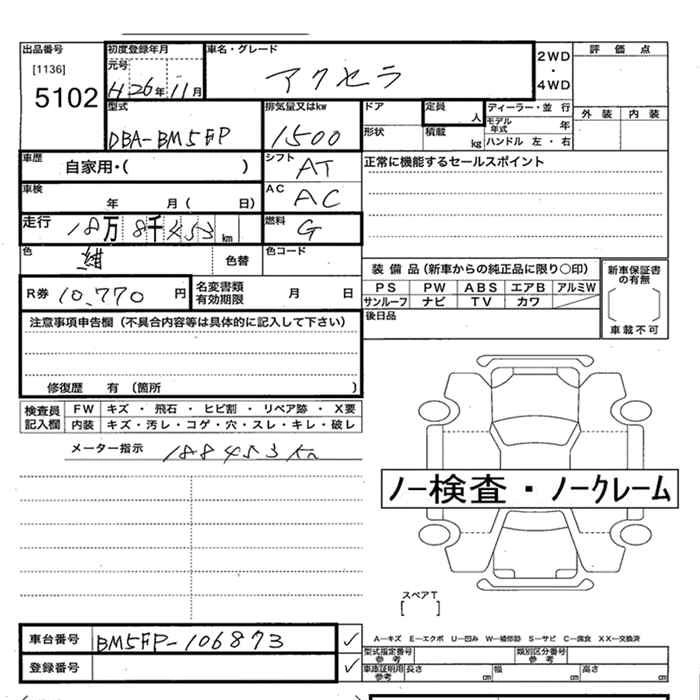 出品番号 初度登録年月 車名・グレード 2WD 評価点
[1136] 元号 アクセラ ・
5102 H26年11月 4WD 外装 内装
型式 排気量又はkw ドア 定員 人 ディーラー・並行
DBA-BM5FP 1500 形状 積載 kg モデル年式 年
ハンドル 左・右
車歴 自家用・( ) シフト AT 正常に機能するセールスポイント
車検 年 月( 日) AC AC
走行 18万8千453km 燃料 G
色 紺 色替 色コード
装備品(新車からの純正品に限り○印) 新車保証書の有無
R券 10,770円 名変書類有効期限 月 日 PS PW ABS エアB アルミW
サンルーフ ナビ TV カワ 車載不可
注意事項申告欄(不具合内容等は具体的に記入して下さい) 後日品
修復歴 有(箇所 )
検査員記入欄 FW キズ・飛石・ヒビ割・リペア跡・X要
内装 キズ・汚レ・コゲ・穴・スレ・キレ・破レ
メーター指示 188453km
ノー検査・ノークレーム
スペアT
[ ]
車台番号 BM5FP-106873 ✓ A―キズ E―エクボ U―凹み W―補修跡 S―サビ C―腐食 XX―交換済
型式指定番号 参考 類別区分番号 参考
登録番号 ✓ 車庫証明用 参考 長さ cm 幅 cm 高さ cm